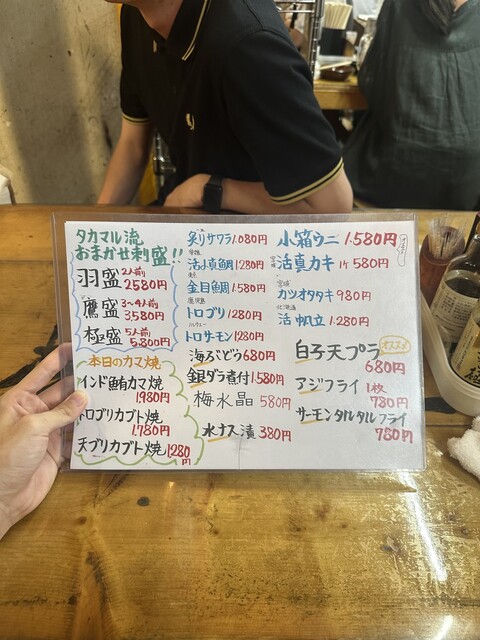 タカマル流
おまかせ刺盛!!
羽盛 2人前 2580円
鷹盛 3~4人前 3580円
極盛 5人前 5.800円
本日のカマ焼
インド鮪カマ焼
1980円
トロブリカブト焼
1.780円
天ブリカブト焼 1280円
炙りサワラ 1.080円
活〆真鯛 1280円
金目鯛 1.580円
鹿児島
トロブリ 1280円
ノルウェー
トロサーモン 1280円
海ぶどう 680円
銀ダラ煮付 1.580円
梅水晶 580円
水ナス漬 380円
小箱ウニ 1.580円
宮城
活真カキ 1ケ 580円
宮城
カツオタタキ 980円
北海道
活帆立 1.280円
オススメ
白子天プラ
680円
アジフライ 1枚
780円
サーモンタルタルフライ
780円